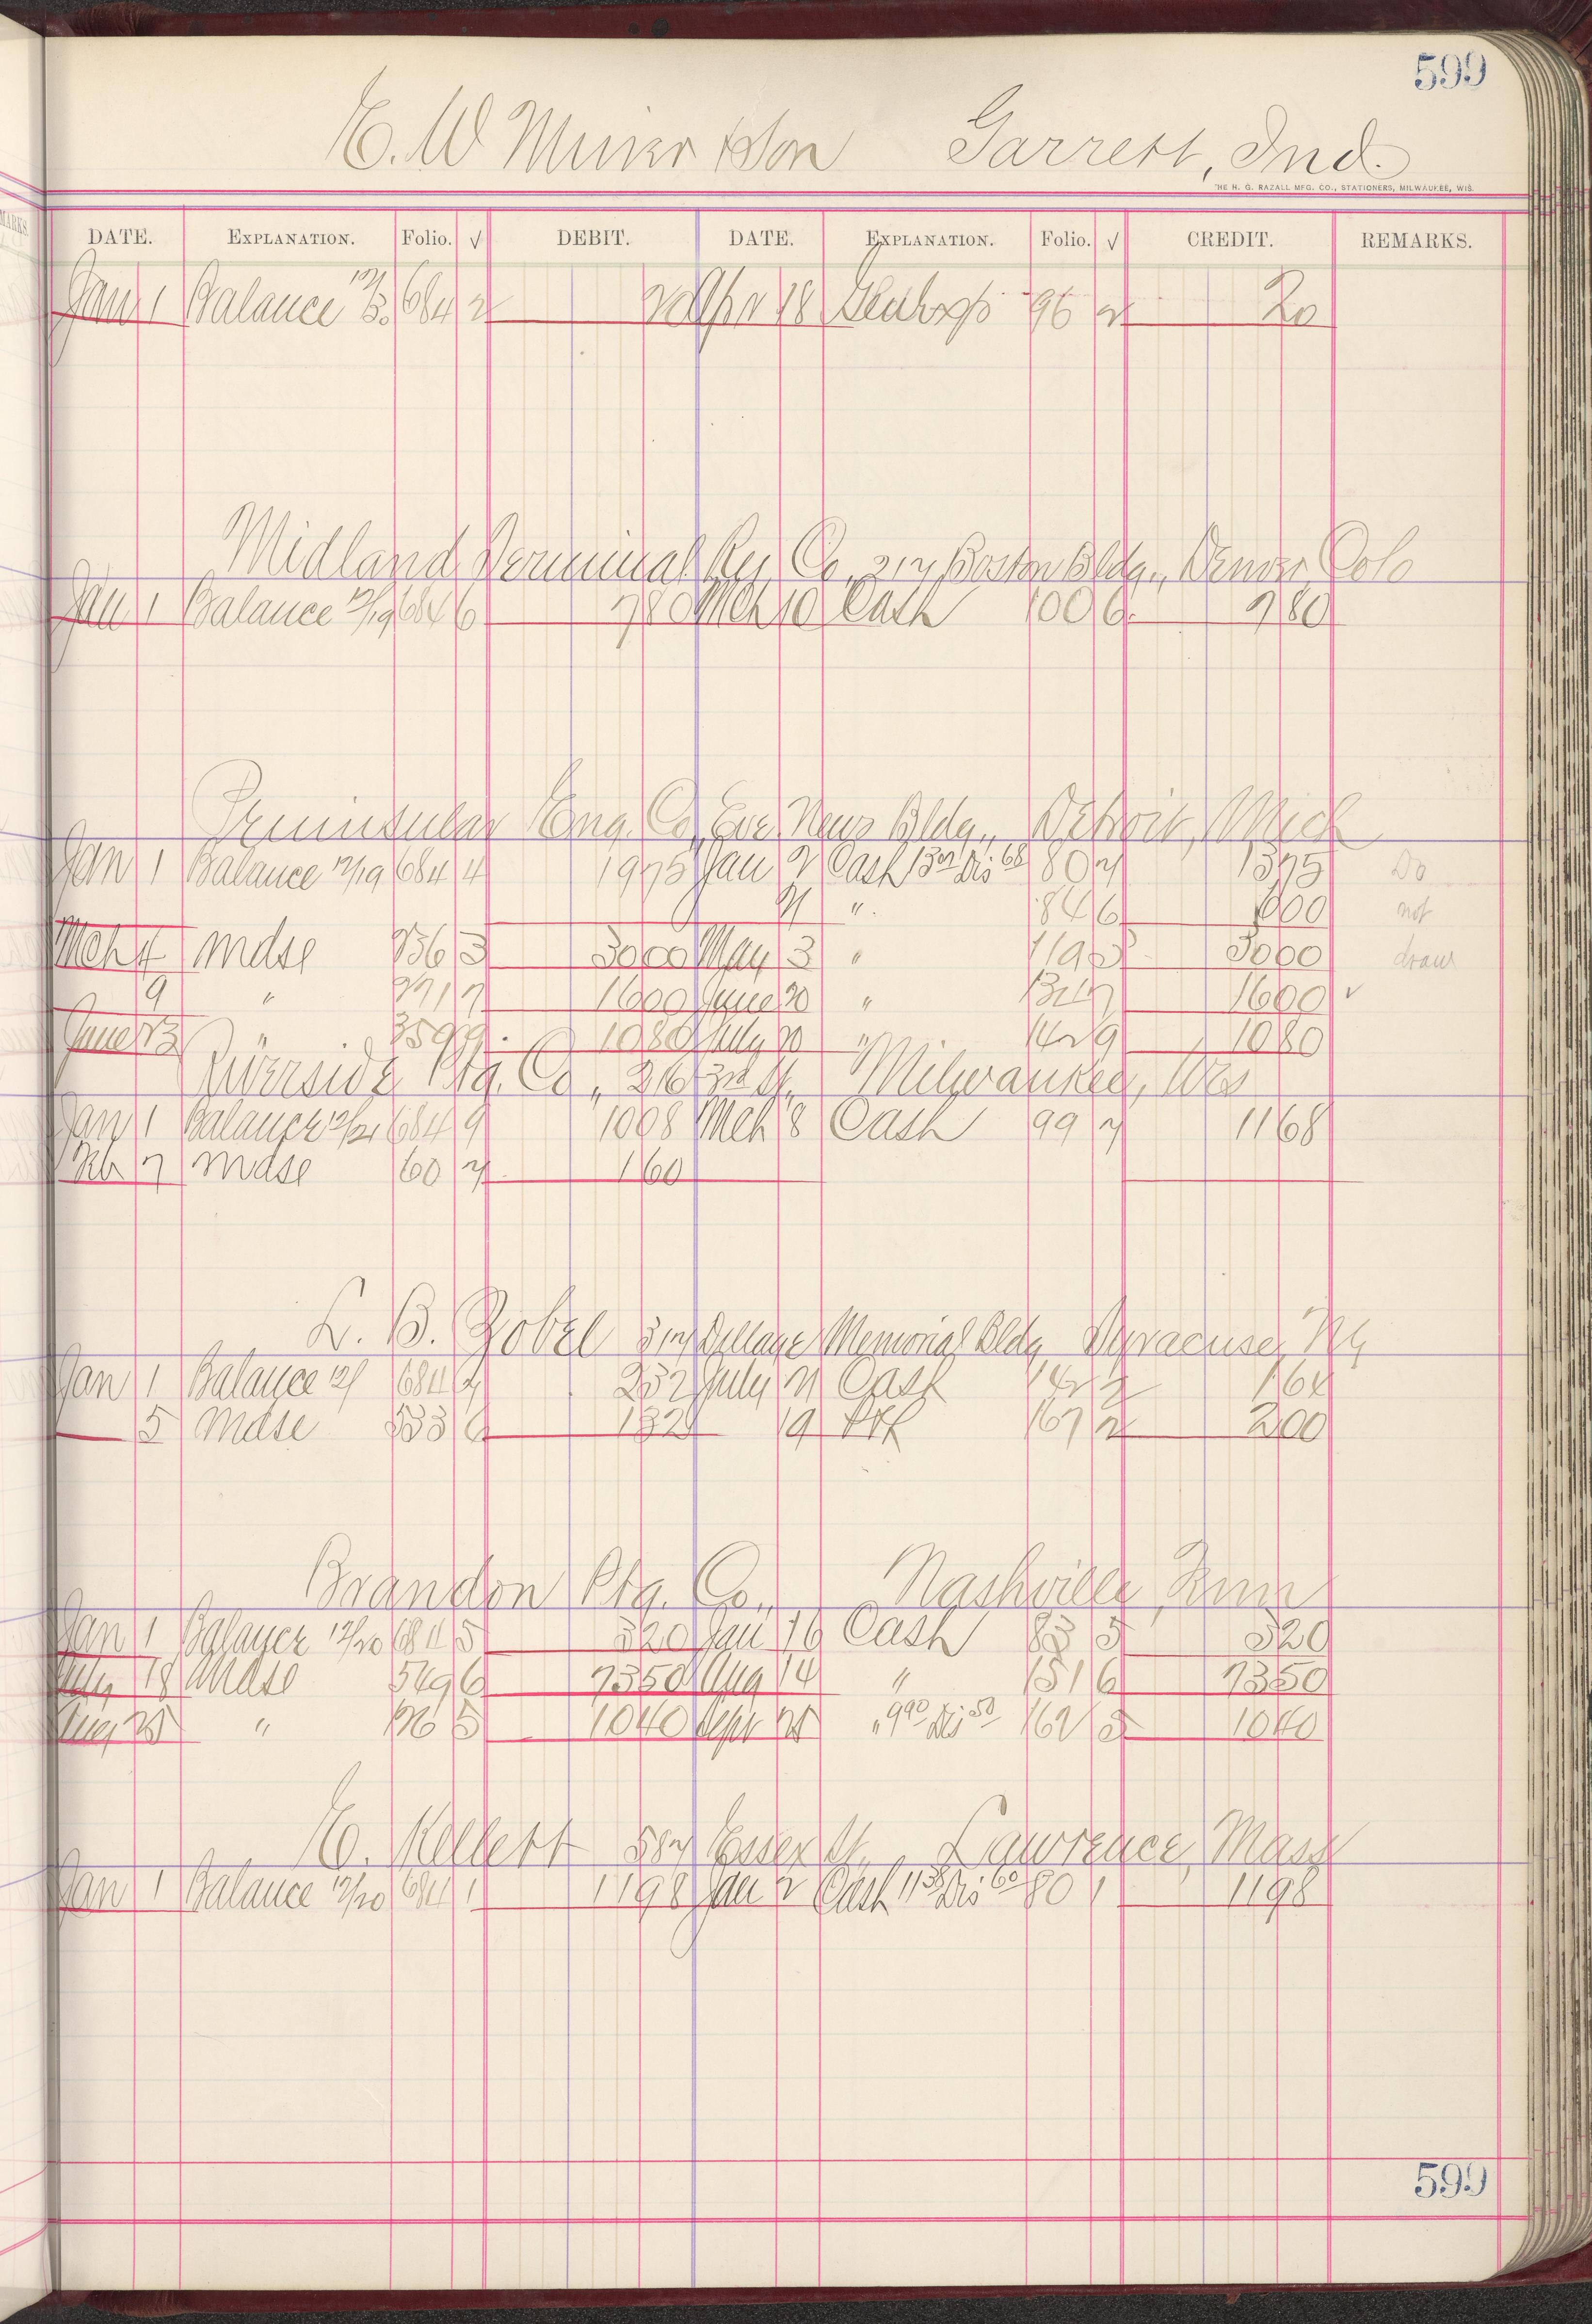 599
E. W. Miner & Son Garrett, Ind.
THE H. G. RAZALL MFG. CO., STATIONERS, MILWAUKEE, WIS.
DATE. EXPLANATION. Folio. √ DEBIT. DATE. EXPLANATION. Folio. √ CREDIT. REMARKS.
Jan 1 Balance 684 2 20 Apr 18 96 2 20
Midland Terminal Ry Co. 317 Boston Bldg., Denver Colo
Jan 1 Balance 12/19 684 6 780 Mch 10 Cash 100 6 780
Peninsular Eng. Co. Eve News Bldg., Detroit, Mich
Jan 1 Balance 12/19 684 4 1975 Jan 2 Cash Dis 80 7 1375 Do
" 84 6 600 not
Mch 4 Mdse 3000 May 3 " 119 3000 draw
9 " 1600 June 20 " 1600 √
June 23 " 1080 July 20 " 142 9 1080
Riverside Ptg. Co., 216 3rd St., Milwaukee, Wis
Jan 1 Balance 12/21 684 9 1008 Mch 8 Cash 99 7 1168
Feb 7 Mdse 60 7 160
L. B. Gobel 317 Dillaye Memorial Bldg Syracuse, NY
Jan 1 Balance 684 232 July 21 Cash 164
5 Mdse 132 19 167 2 200
Brandon Ptg. Co., Nashville, Tenn
Jan 1 Balance 12/20 684 5 520 Jan 16 Cash 83 5 520
July 18 Mdse 549 6 7350 Aug 14 " 151 6 7350
Aug 25 " 5 1040 Sept 25 " 990 Dis 50 162 5 1040
E. Kellett 587 Essex St., Lawrence, Mass
Jan 1 Balance 12/20 684 1 1198 Jan 2 Cash 1138 Dis 60 80 1 1198
599